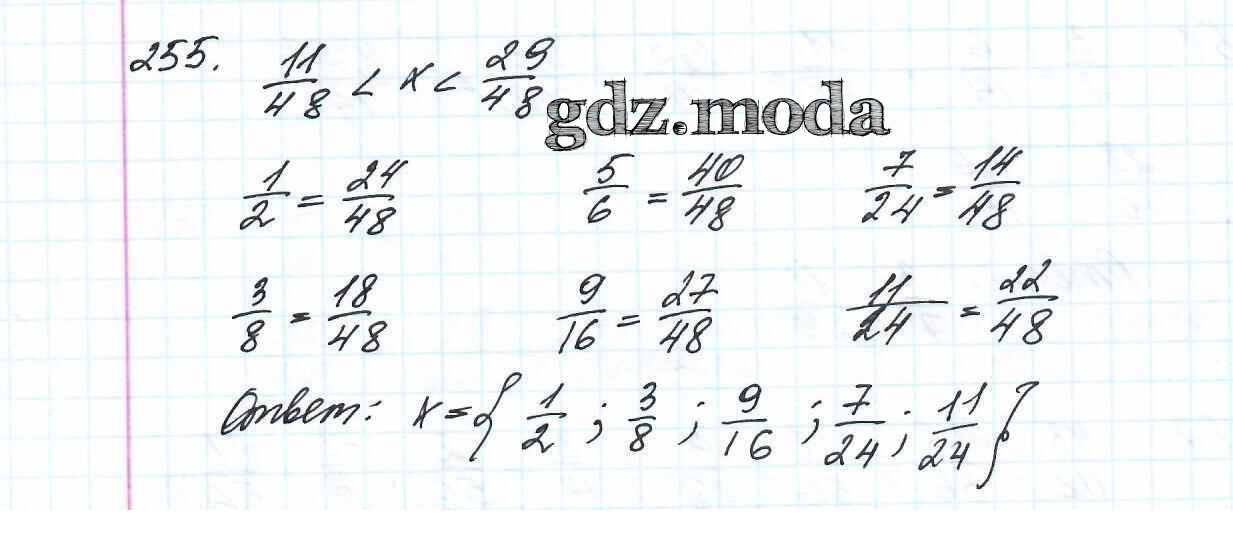 255. 11/48 < x < 29/48
gdz.moda
1/2 = 24/48 5/6 = 40/48 7/24 = 14/48
3/8 = 18/48 9/16 = 27/48 11/24 = 22/48
Ответ: x = { 1/2 ; 3/8 ; 9/16 ; 7/24 ; 11/24 }